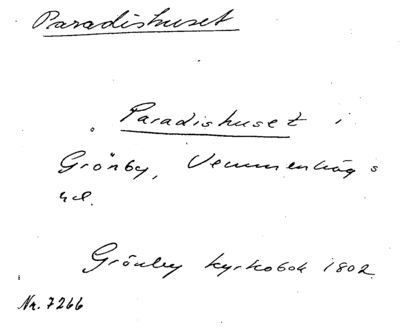 Paradishuset
Paradishuset i
Grönby, Vemmenhög s
hd.
Grönby kyrkobok 1802.
Nr. 7266